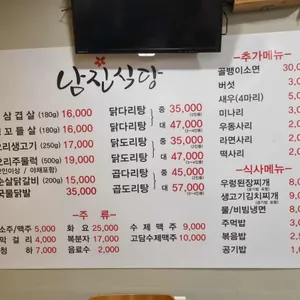 남진식당
삼겹살 (180g) 16,000
꼬들살 (180g) 16,000
오리생고기 (250g) 17,000
오리주물럭 (500g) 19,000
순살닭갈비 (200g) 15,000
국물닭발 35,000
닭다리탕 중 35,000
대 47,000
닭도리탕 중 35,000
대 47,000
곱도리탕 중 45,000
대 57,000
-주 류-
소주/맥주 5,000
막걸리 4,000
청하 7,000
화요 25,000
복분자 17,000
음료수 2,000
수제맥주 9,000
고담수제맥주 10,000
-추가메뉴-
골뱅이소면 30,000
버섯
새우(4마리)
미나리
우동사리
라면사리
떡사리
-식사메뉴-
우렁된장찌개
생고기김치찌개
물/비빙냉면
주먹밥
볶음밥
공기밥